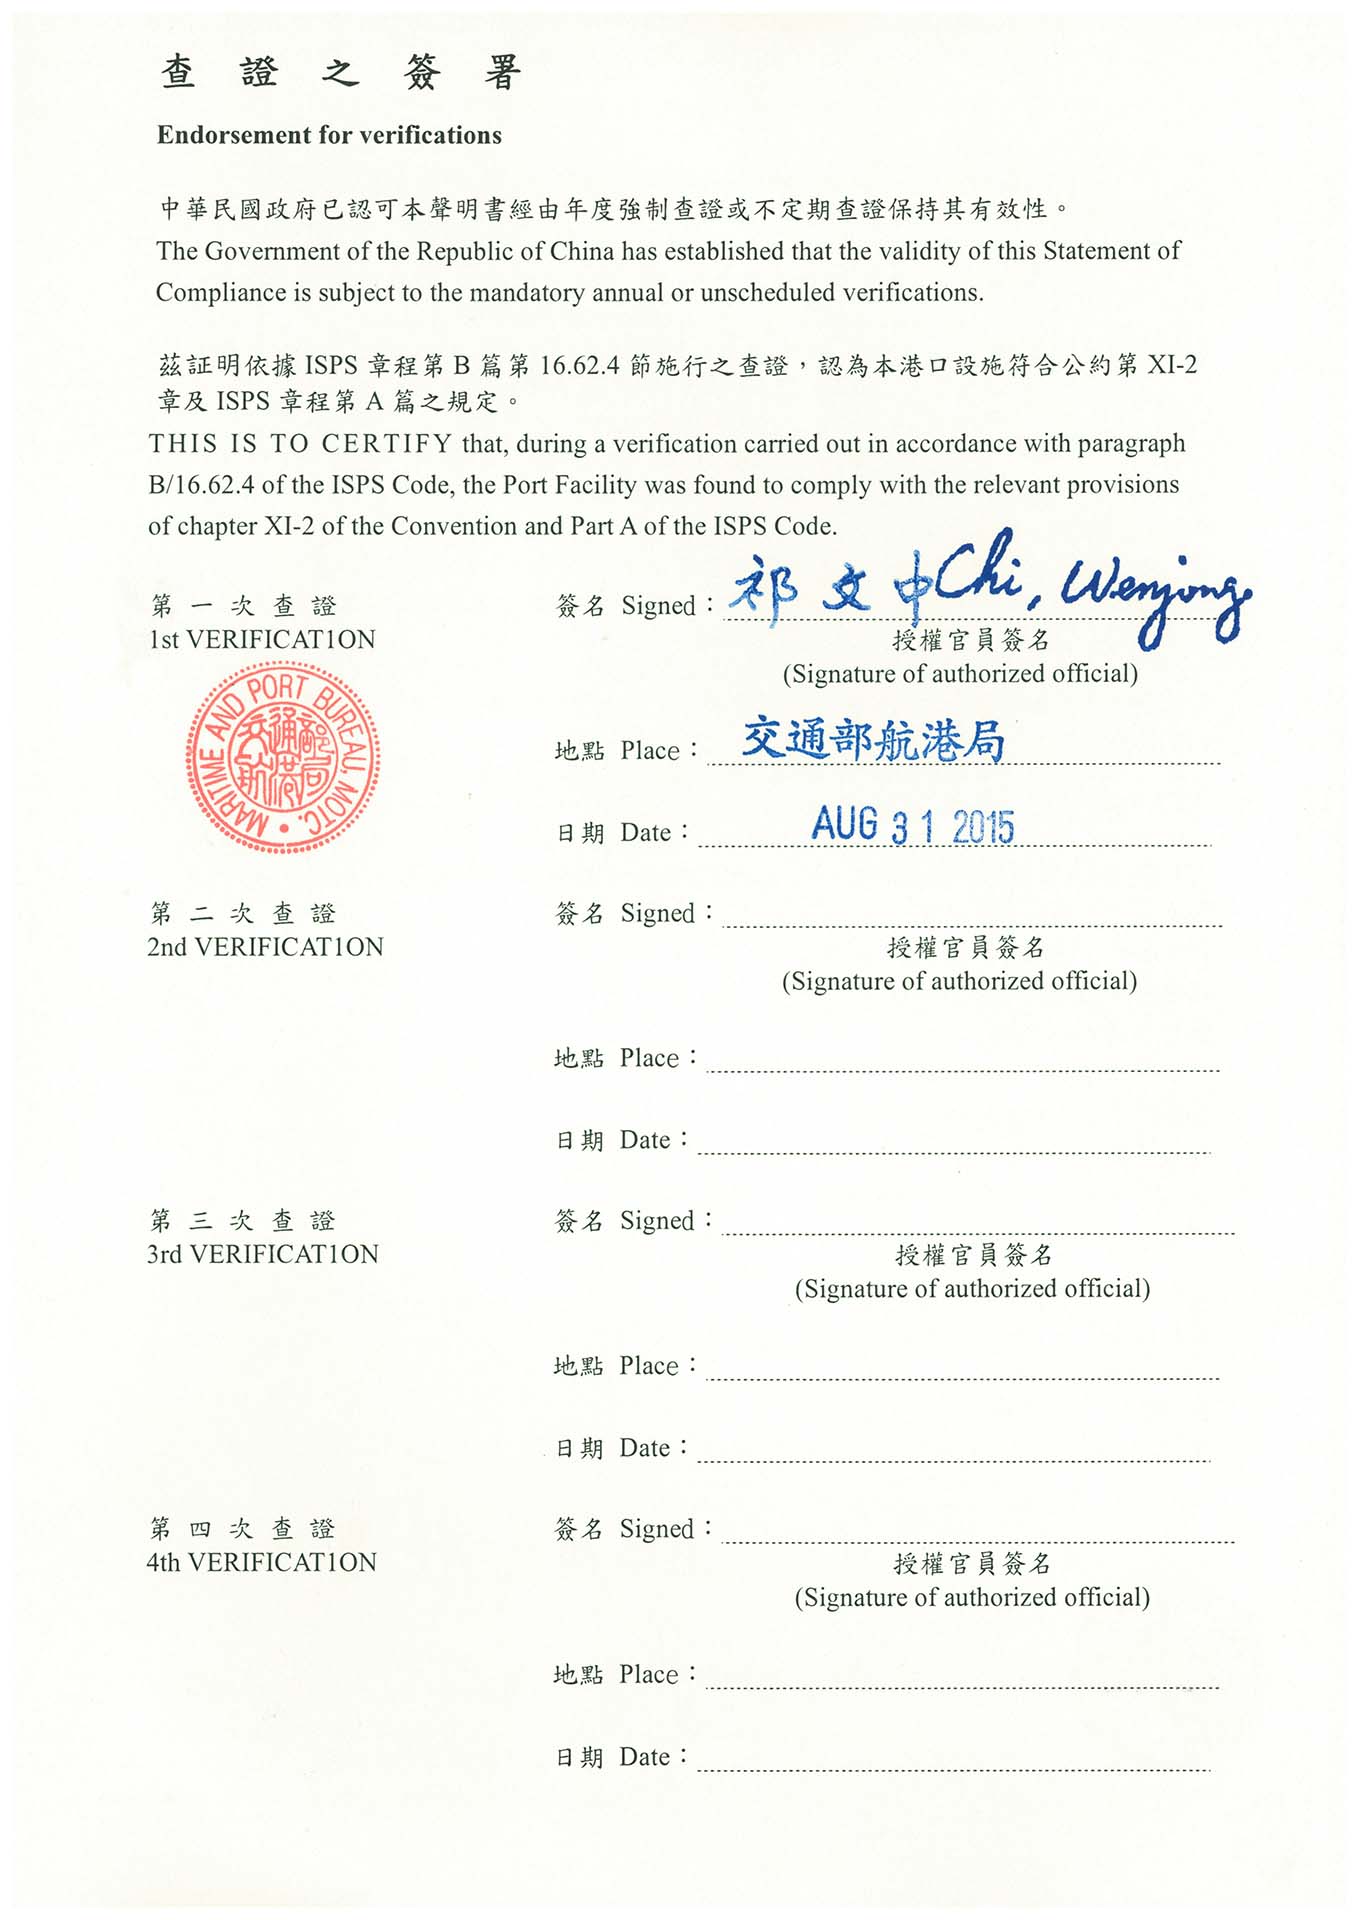 查證之簽署
Endorsement for verifications
中華民國政府已認可本聲明書經由年度強制查證或不定期查證保持其有效性。
The Government of the Republic of China has established that the validity of this Statement of
Compliance is subject to the mandatory annual or unscheduled verifications.
茲証明依據 ISPS 章程第 B 篇第 16.62.4 節施行之查證，認為本港口設施符合公約第 XI-2
章及 ISPS 章程第 A 篇之規定。
THIS IS TO CERTIFY that, during a verification carried out in accordance with paragraph
B/16.62.4 of the ISPS Code, the Port Facility was found to comply with the relevant provisions
of chapter XI-2 of the Convention and Part A of the ISPS Code.
第一次查證 簽名 Signed：祁文中 Chi, Wenjong
1st VERIFICAT1ON 授權官員簽名
(Signature of authorized official)
MARITIME AND PORT BUREAU, MOTC.
交通部航港局
地點 Place：交通部航港局
日期 Date：AUG 31 2015
第二次查證 簽名 Signed：
2nd VERIFICAT1ON 授權官員簽名
(Signature of authorized official)
地點 Place：
日期 Date：
第三次查證 簽名 Signed：
3rd VERIFICAT1ON 授權官員簽名
(Signature of authorized official)
地點 Place：
日期 Date：
第四次查證 簽名 Signed：
4th VERIFICAT1ON 授權官員簽名
(Signature of authorized official)
地點 Place：
日期 Date：